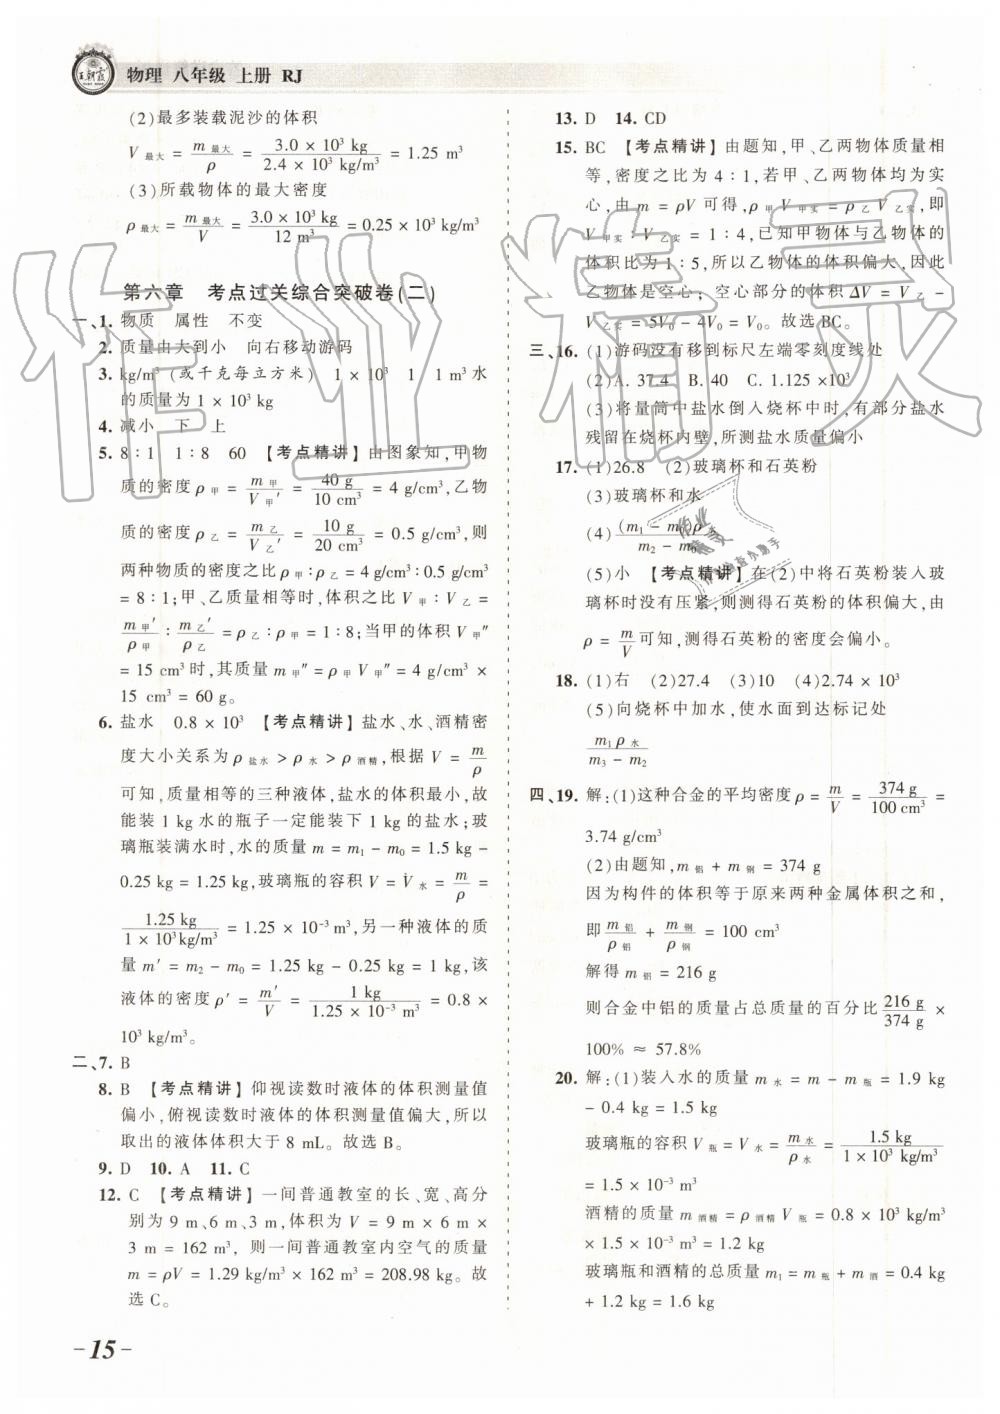 王朝霞
物理 八年级 上册 RJ
(2)最多装载泥沙的体积
V最大 = m最大/ρ = 3.0 × 10³ kg/2.4 × 10³ kg/m³ = 1.25 m³
(3)所载物体的最大密度
ρ最大 = m最大/V = 3.0 × 10³ kg/12 m³ = 0.25 × 10³ kg/m³
第六章 考点过关综合突破卷(二)
一、1. 物质 属性 不变
2. 质量由大到小 向右移动游码
3. kg/m³ (或千克每立方米) 1 × 10³ 1 1 m³水
的质量为 1 × 10³ kg
4. 减小 下 上
5. 8∶1 1∶8 60 【考点精讲】由图象知,甲物
质的密度ρ甲 = m甲′/V甲′ = 40 g/10 cm³ = 4 g/cm³,乙物
质的密度ρ乙 = m乙′/V乙′ = 10 g/20 cm³ = 0.5 g/cm³,则
两种物质的密度之比ρ甲∶ρ乙 = 4 g/cm³∶0.5 g/cm³
= 8∶1;甲、乙质量相等时,体积之比 V甲∶V乙 =
m甲′/ρ甲∶m乙′/ρ乙 = ρ乙∶ρ甲 = 1∶8;当甲的体积 V甲″
= 15 cm³时,其质量 m甲″ = ρ甲V甲″ = 4 g/cm³ ×
15 cm³ = 60 g。
6. 盐水 0.8 × 10³ 【考点精讲】盐水、水、酒精密
度大小关系为ρ盐水 > ρ水 > ρ酒精,根据 V = m/ρ
可知,质量相等的三种液体,盐水的体积最小,故
能装 1 kg 水的瓶子一定能装下 1 kg 的盐水;玻
璃瓶装满水时,水的质量 m = m₁ − m₀ = 1.5 kg −
0.25 kg = 1.25 kg,玻璃瓶的容积 V = V水 = m/ρ =
1.25 kg/1 × 10³ kg/m³ = 1.25 × 10⁻³ m³,另一种液体的质
量 m′ = m₂ − m₀ = 1.25 kg − 0.25 kg = 1 kg,该
液体的密度ρ′ = m′/V = 1 kg/1.25 × 10⁻³ m³ = 0.8 ×
10³ kg/m³。
二、7. B
8. B 【考点精讲】仰视读数时液体的体积测量值
偏小,俯视读数时液体的体积测量值偏大,所以
取出的液体体积大于 8 mL。故选 B。
9. D 10. A 11. C
12. C 【考点精讲】一间普通教室的长、宽、高分
别为 9 m、6 m、3 m,体积约为 V = 9 m × 6 m ×
3 m = 162 m³, 则一间普通教室内空气的质量
m = ρV = 1.29 kg/m³ × 162 m³ = 208.98 kg。故
选 C。
13. D 14. CD
15. BC 【考点精讲】由题知,甲、乙两物体质量相
等,密度之比为 4∶1,若甲、乙两物体均为实
心,由 m = ρV 可得,ρ甲V甲实 = ρ乙V乙实,即
V甲实∶V乙实 = 1∶4,已知甲物体与乙物体的
体积比为 1∶5,所以乙物体的体积偏大,因此
乙物体是空心;空心部分的体积ΔV = V乙 −
V乙实 = 5V₀ − 4V₀ = V₀。故选BC。
三、16. (1)游码没有移到标尺左端零刻度线处
(2)A. 37.4 B. 40 C. 1.125 ×10³
(3)将量筒中盐水倒入烧杯中时,有部分盐水
残留在烧杯内壁,所测盐水质量偏小
17. (1)26.8 (2)玻璃杯和石英粉
(3)玻璃杯和水
(4)(m₁ − m₀)ρ/m₂ − m₀
(5)小 【考点精讲】在(2)中将石英粉装入玻
璃杯时没有压紧,则测得石英粉的体积偏大,由
ρ = m/V可知,测得石英粉的密度会偏小。
18. (1)右 (2)27.4 (3)10 (4)2.74 × 10³
(5)向烧杯中加水,使水面到达标记处
m₁ρ水/m₃ − m₂
四、19. 解:(1)这种合金的平均密度ρ = m/V = 374 g/100 cm³ =
3.74 g/cm³
(2)由题知,m铝 + m钢 = 374 g
因为构件的体积等于原来两种金属体积之和,
即m铝/ρ铝 + m钢/ρ钢 = 100 cm³
解得 m铝 = 216 g
则合金中铝的质量占总质量的百分比216 g/374 g ×
100% ≈ 57.8%
20. 解:(1)装入水的质量 m水 = m − m瓶 = 1.9 kg
− 0.4 kg = 1.5 kg
玻璃瓶的容积 V瓶 = V水 = m水/ρ水 = 1.5 kg/1 × 10³ kg/m³
= 1.5 × 10⁻³ m³
酒精的质量 m酒精 = ρ酒精V瓶 = 0.8 × 10³ kg/m³
× 1.5 × 10⁻³ m³ = 1.2 kg
玻璃瓶和酒精的总质量 m₁ = m瓶 + m酒 = 0.4 kg
+ 1.2 kg = 1.6 kg
作业精灵
− 15 −